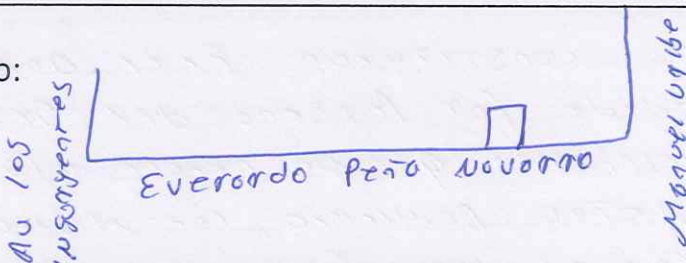 o:
Av los
Insurgentes
Everardo Peña Navarro
Manuel Uribe